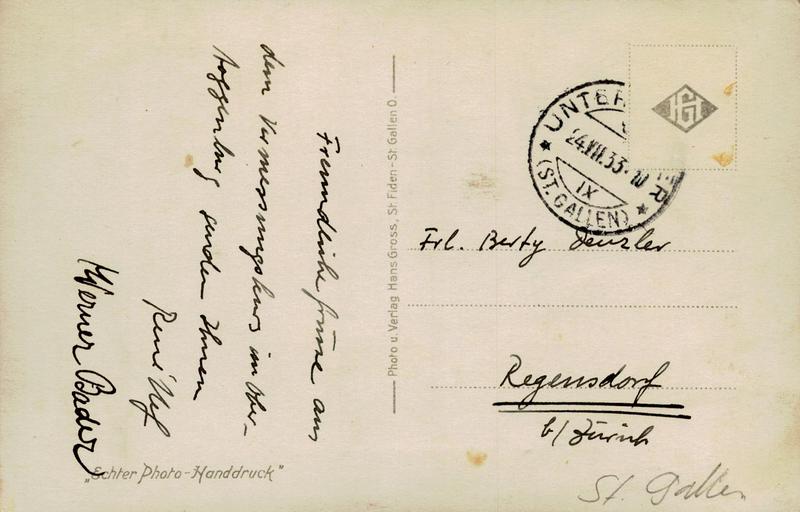 Freundliche Grüsse aus
dem Vermessungskurs im Ober-
toggenburg senden Ihnen
René
Werner Bader
"Echter Photo-Handdruck"
Photo u. Verlag Hans Gross, St. Fiden - St. Gallen O.
UNTER
24.VII.33
IX
(ST. GALLEN)
HG
Frl. Berty Denzler
Regensdorf
b/ Zürich
St. Gallen